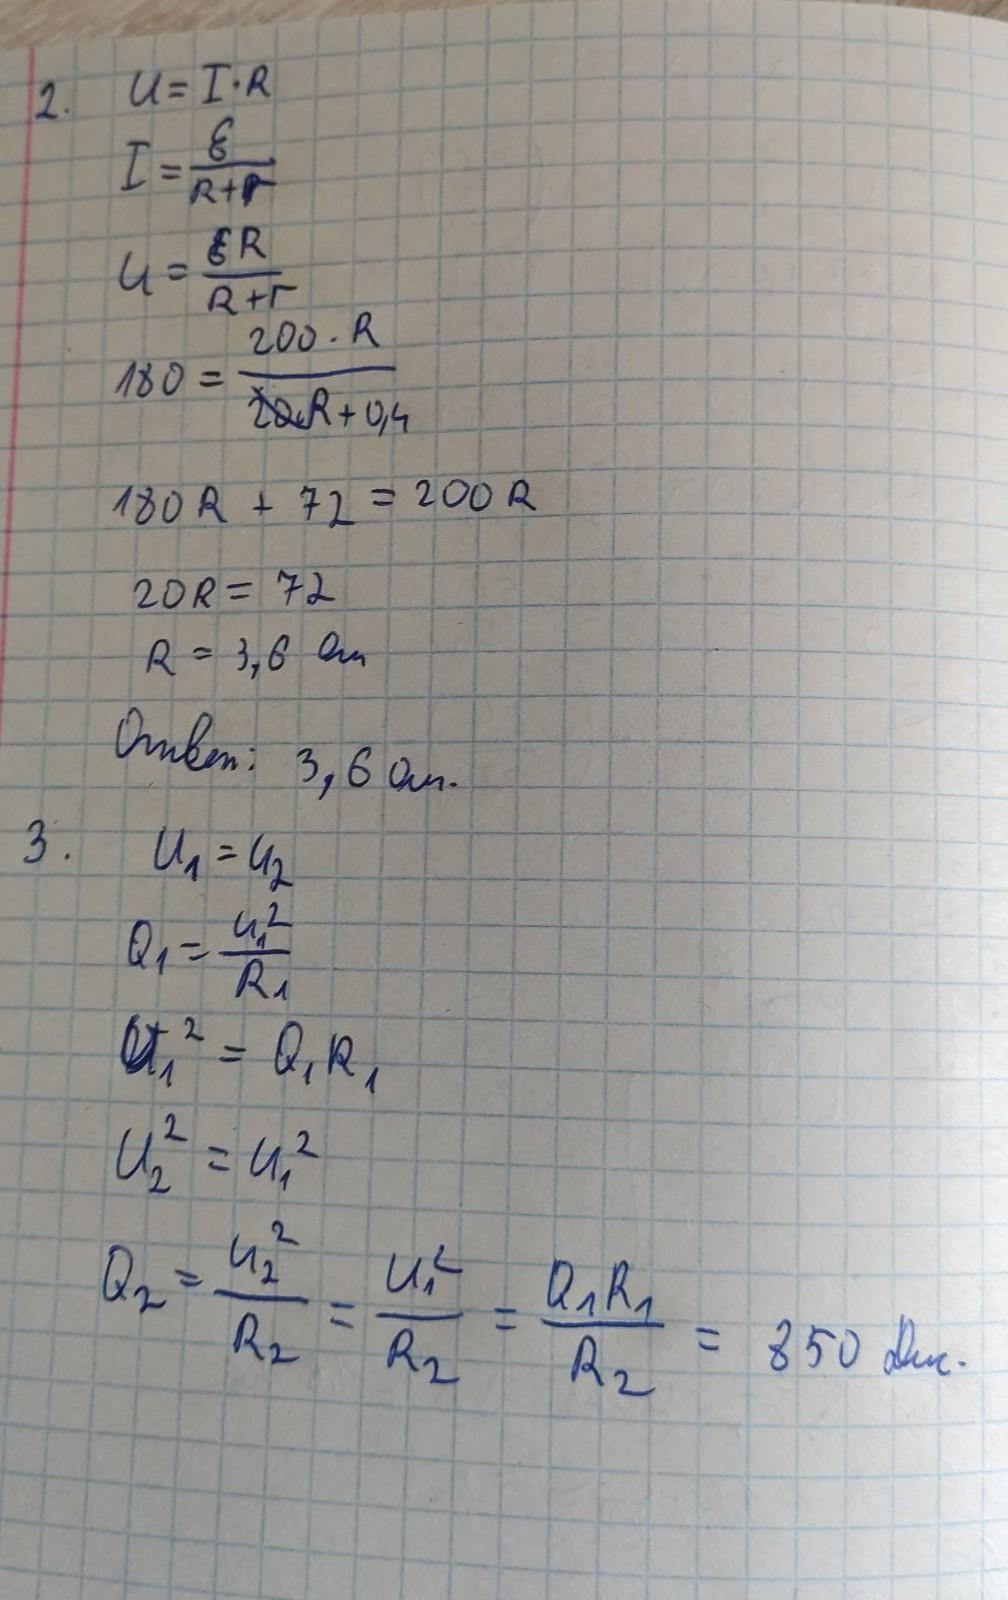 2. U = I · R
I = ℰ / (R + r)
U = ℰR / (R + r)
180 = 200 · R / (R + 0,4)
180R + 72 = 200R
20R = 72
R = 3,6 Ом
Ответ: 3,6 Ом.
3. U₁ = U₂
Q₁ = U₁² / R₁
U₁² = Q₁R₁
U₂² = U₁²
Q₂ = U₂² / R₂ = U₁² / R₂ = Q₁R₁ / R₂ = 850 Дж.